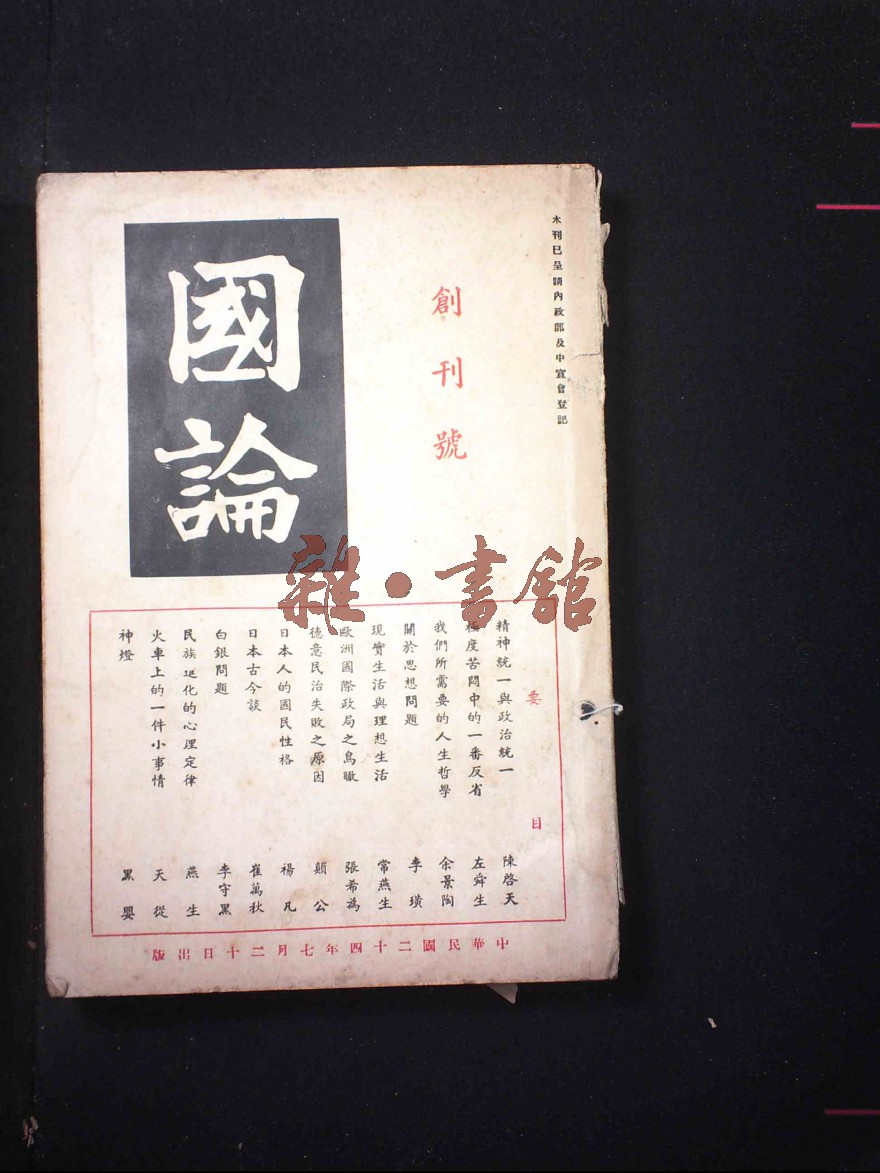 本刊已呈請內政部及中宣會登記
創刊號
國論
要目
精神統一與政治統一 陳啓天
極度苦悶中的一番反省 左舜生
我們所需要的人生哲學 余景陶
關於思想問題 李璜
現實生活與理想生活 常燕生
歐洲國際政局之鳥瞰 張希為
德意民治失敗之原因 顛公
日本人的國民性格 楊凡
日本古今談 崔萬秋
白銀問題 李守黑
民族進化的心理定律 燕生
火車上的一件小事情 天從
神燈 黑嬰
中華民國二十四年七月二十日出版
雜·書館